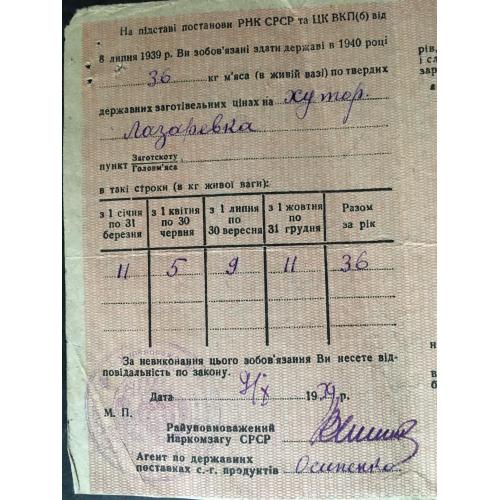 На підставі постанови РНК СРСР та ЦК ВКП(б) від
8 липня 1939 р. Ви зобов'язані здати державі в 1940 році
36 кг м'яса (в живій вазі) по твердих
державних заготівельних цінах на хутор.
Лазаревка
пункт Заготскоту
Головм'яса
в такі строки (в кг живої ваги):
з 1 січня по 31 березня | з 1 квітня по 30 червня | з 1 липня по 30 вересня | з 1 жовтня по 31 грудня | Разом за рік
11 | 5 | 9 | 11 | 36
За невиконання цього зобов'язання Ви несете від-
повідальність по закону.
Дата 9/X 1939 р.
М. П.
Райуповноважений
Наркомзагу СРСР
Агент по державних
поставках с.-г. продуктів Осипенко
рів,
і сл
зар